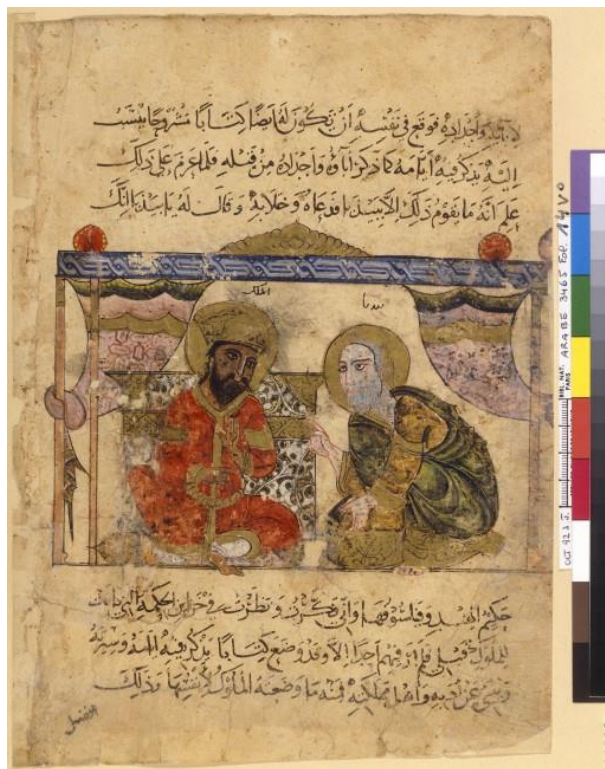 لآبائه وأجداده فوقع في نفسه أن تكون له أيضا كتابا مشروحا ينسب
إليه يذكر فيه أيامه كما ذكر آباؤه وأجداده من قبله فلما عزم على ذلك
علم أنه ما يقوم بذلك إلا بيدبا فدعاه وخلا به وقال له يا بيدبا إنك
الملك
بيدبا
حكيم الهند وفيلسوفها وإني فكرت ونظرت في خزاين الحكمة التي كانت
للملوك قبلي فلم أر فيهم أحدا إلا وقد وضع كتابا يذكر فيه أيامه وسيرته
وينبئ عن أدبه وأهل مملكته فمنه ما وضعته الملوك لأنفسها وذلك
لفضل
BIBL. NAT. PARIS
ARABE 3465 FOL. 14 V°